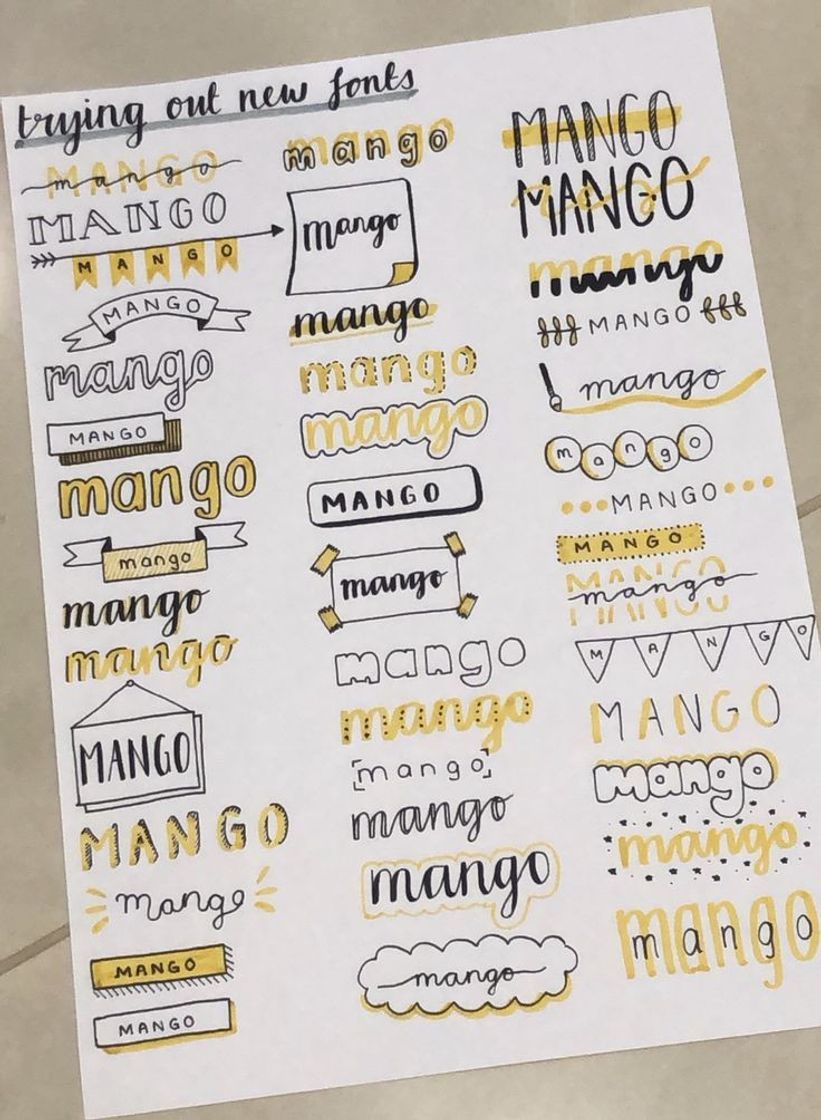 trying out new fonts
MANGO
mango
MANGO
MANGO
MANGO
mango
MANGO
mango
mango
mango
mango
MANGO
MANGO
mango
MANGO
MANGO
mango
mango
mango
mango
mango
MANGO
mango
mango
mango
[mango]
mango
mango
mango
MANGO
MANGO
mango
MANGO
mango
mango
MANGO
MANGO
MANGO
mango
MANGO
MANGO
mango
mango
mango
mango